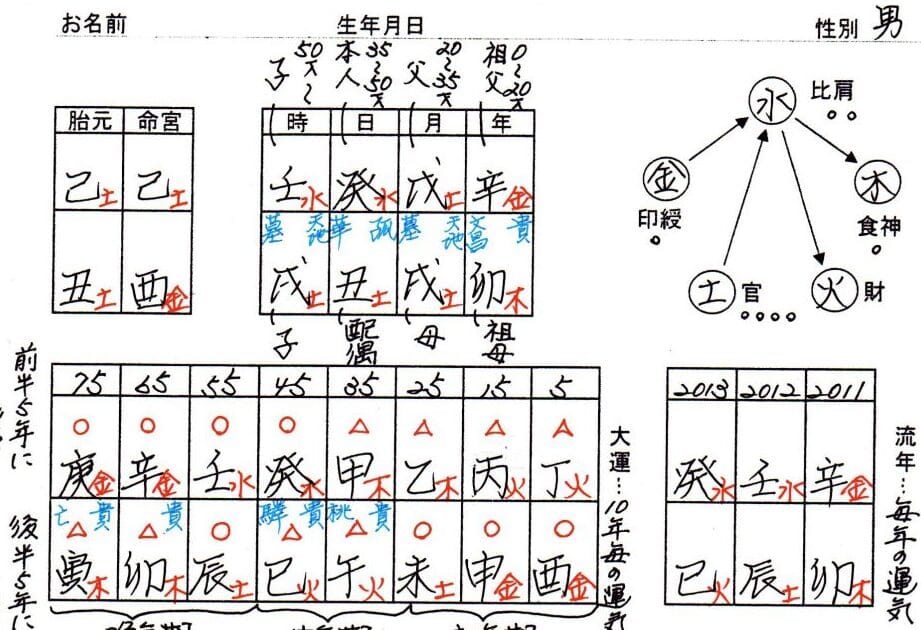 お名前 生年月日 性別 男
子 50才〜 本人 35〜50才 父 20〜35才 祖父 0〜20才
胎元 命宮
時 日 月 年
己土 己土
壬水 癸水 戊土 辛金
墓 天地 華 孤 墓 天地 文昌 貴
丑土 酉金
戌土 丑土 戌土 卯木
子 配偶 母 祖母
水 比肩
金 印綬
木 食神
土 官
火 財
前半5年に
後半5年に
75 65 55 45 35 25 15 5
○ ○ ○ ○ △ △ △ △
庚金 辛金 壬水 癸水 甲木 乙木 丙火 丁火
亡 貴 貴 驛 貴 桃 貴
△ △ ○ △ △ ○ ○ ○
寅木 卯木 辰土 巳火 午火 未土 申金 酉金
大運…10年毎の運気
2013 2012 2011
癸水 壬水 辛金
巳火 辰土 卯木
流年…毎年の運気